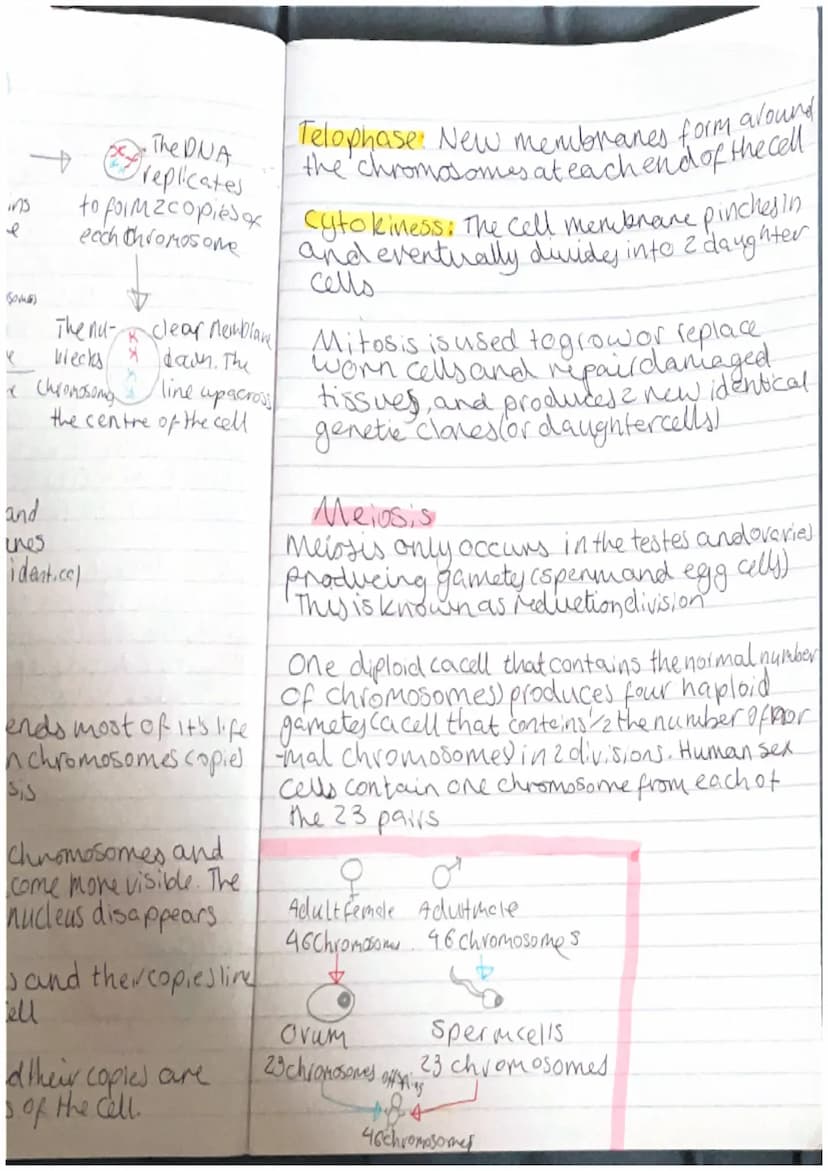 The DNA
replicates
to form 2 copies of
each chromosome
The nu- clear membrane
down. The
chromosome line up across
the centre of the cell
and
identical
ends most of it's life
n chromosomes copies
sis
chromosomes and
come more visible. The
nucleus disappears
s and their copies line
ell
d their copies are
s of the cell.
Telophase: New membranes form around
the chromosomes at each end of the cell
Cytokiness: The cell membrane pinches in
and eventually divides into 2 daughter
cells
Mitosis is used to grow or replace
worn cells and repair damaged
tissues, and produces 2 new identical
genetic clones (or daughter cells)
Meiosis
Meiosis only occurs in the testes and ovaries
producing gametes (sperm and egg cells)
This is known as reduction division
One diploid ca cell that contains the normal number
of chromosomes) produces four haploid
gametes (a cell that contains 1/2 the number of nor
-mal chromosomes) in 2 divisions. Human sex
cells contain one chromosome from each of
the 23 pairs
Adult female Adult male
46 chromosome 46 chromosomes
Ovum Sperm cells
23 chromosomes 23 chromosomes
46 chromosomes